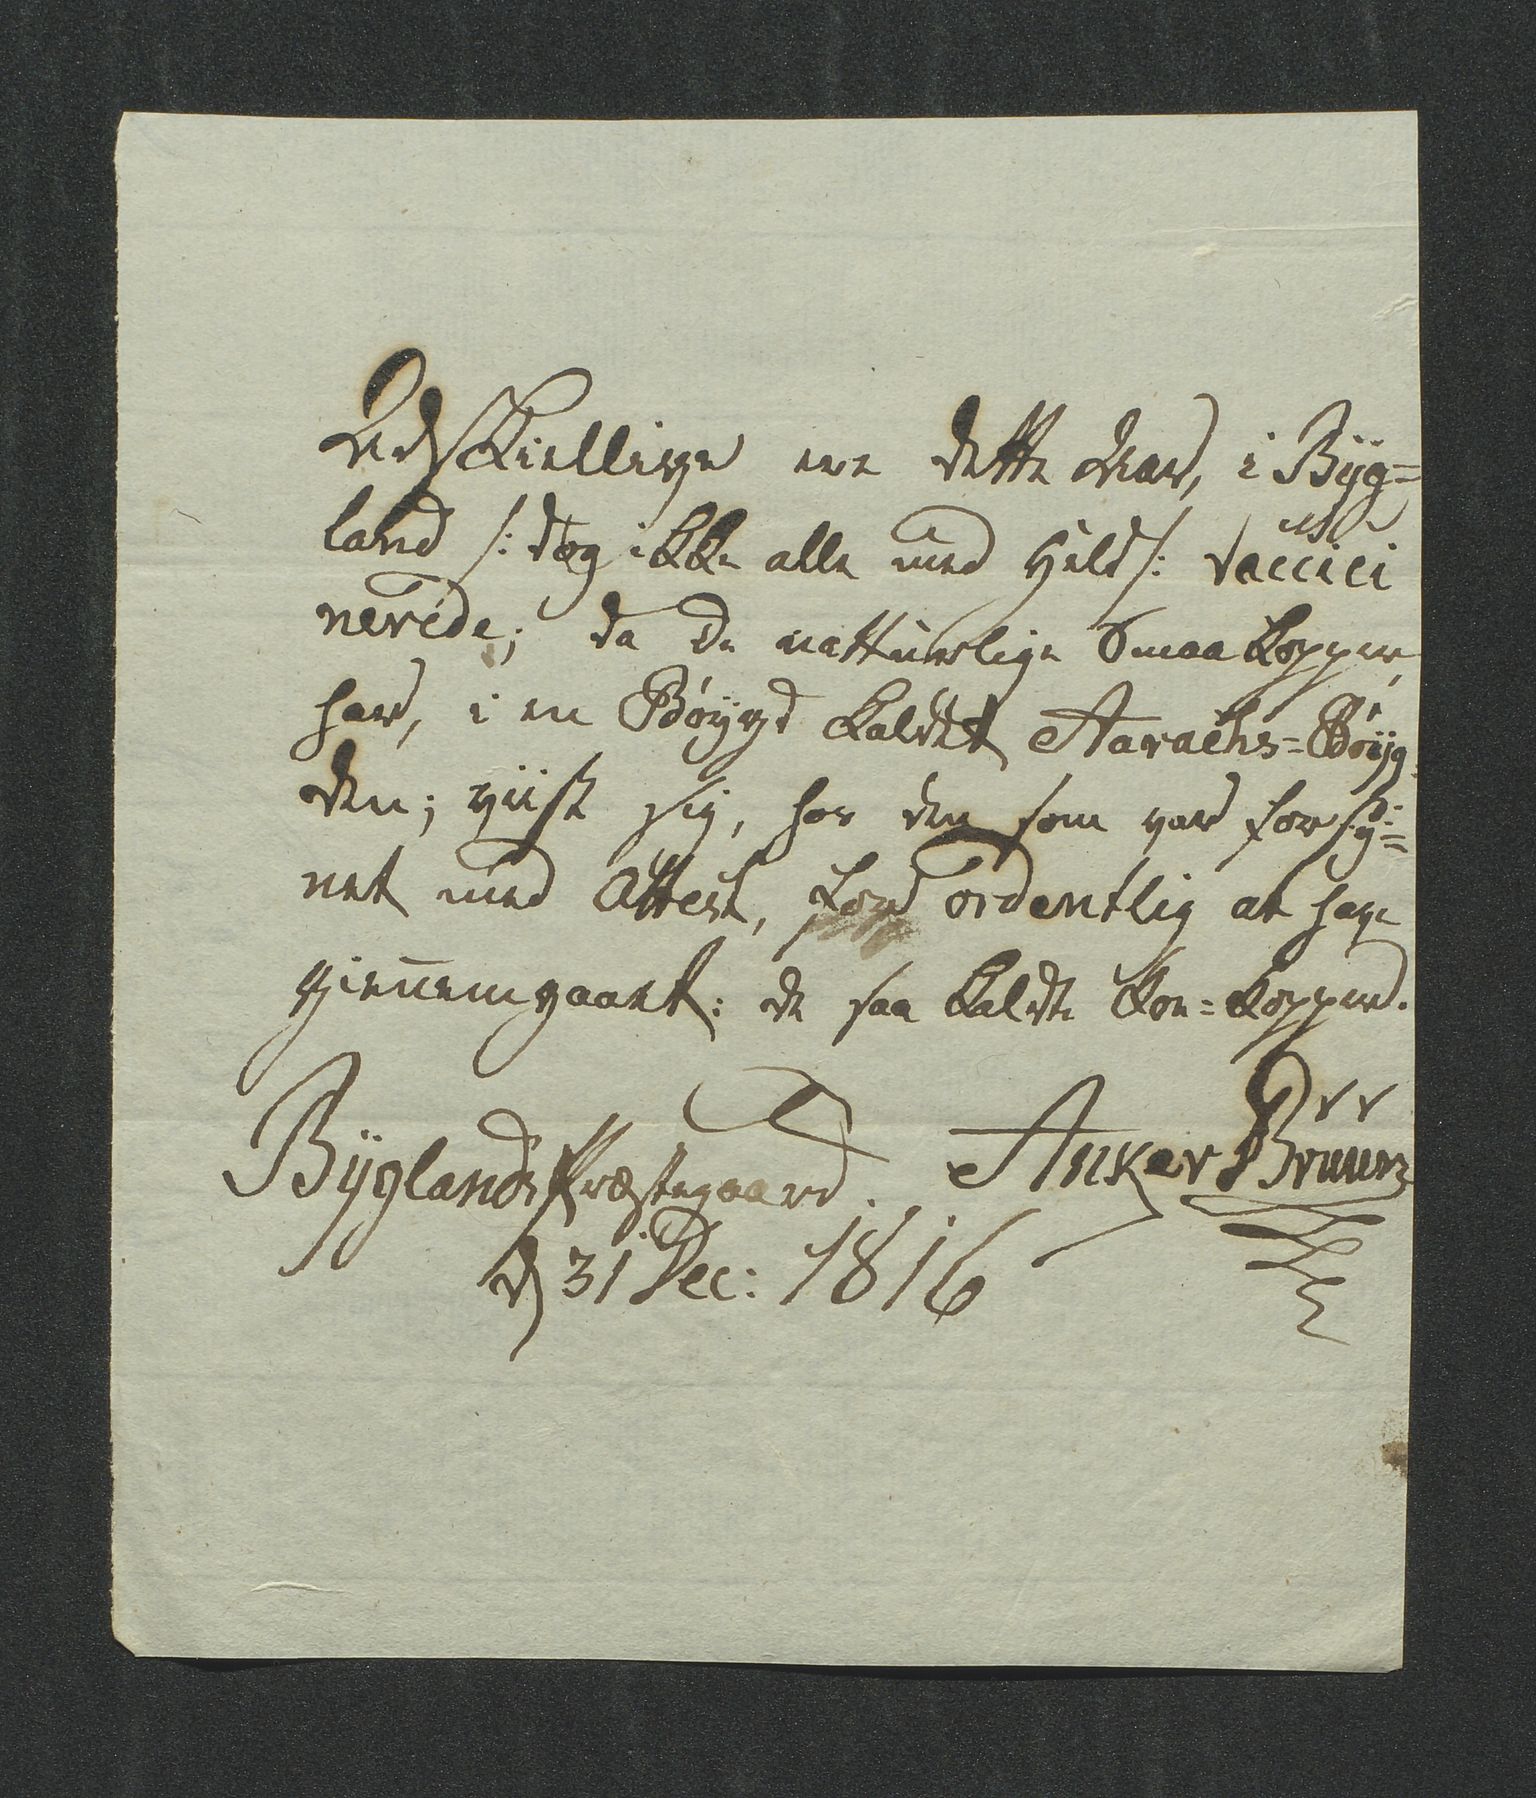 Adskiellige ere dette Aar, i Byg=
land /: dog ikke alle med Held /: vacci
nerede; da de nattuurlige Smaa Kopper,
har, i en Bøygd kaldet Aaraches=Bøyg
den; viist sig, hos dem som var forsy=
net med Attest, for ordentlig at have
giennemgaaet: de saa kaldte Koe=Kopper.
Byglands Præstegaard. Anker Bruun
d 31 Dec: 1816